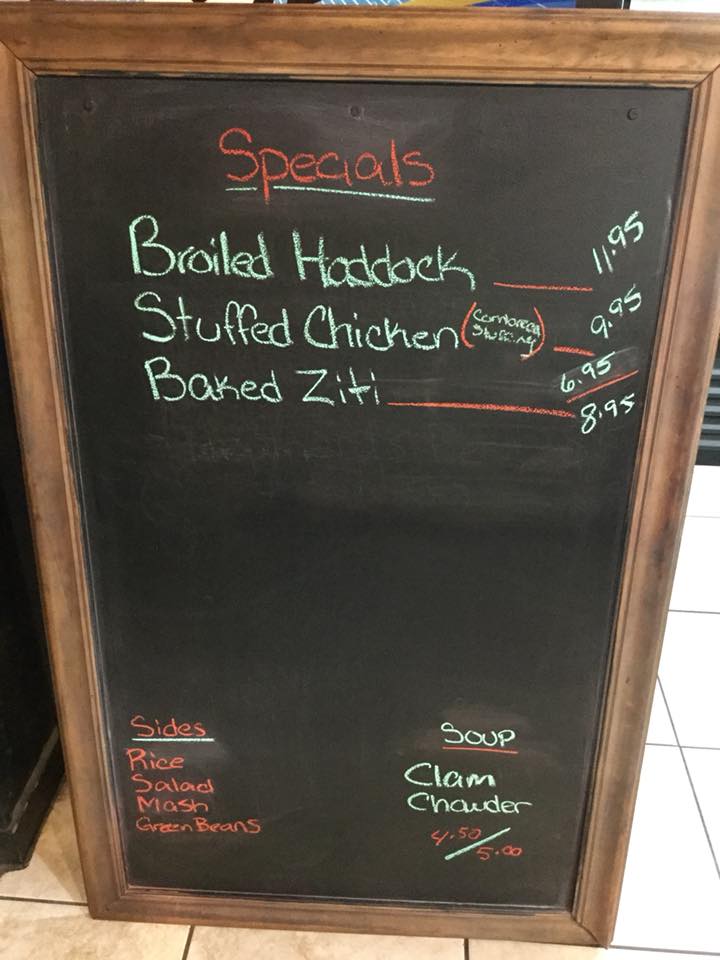 Specials
Broiled Haddock 11.95
Stuffed Chicken (Cornbread Stuffing) 9.95
Baked Ziti 6.95
8.95
Sides
Rice
Salad
Mash
Green Beans
Soup
Clam
Chowder
4.50/5.00